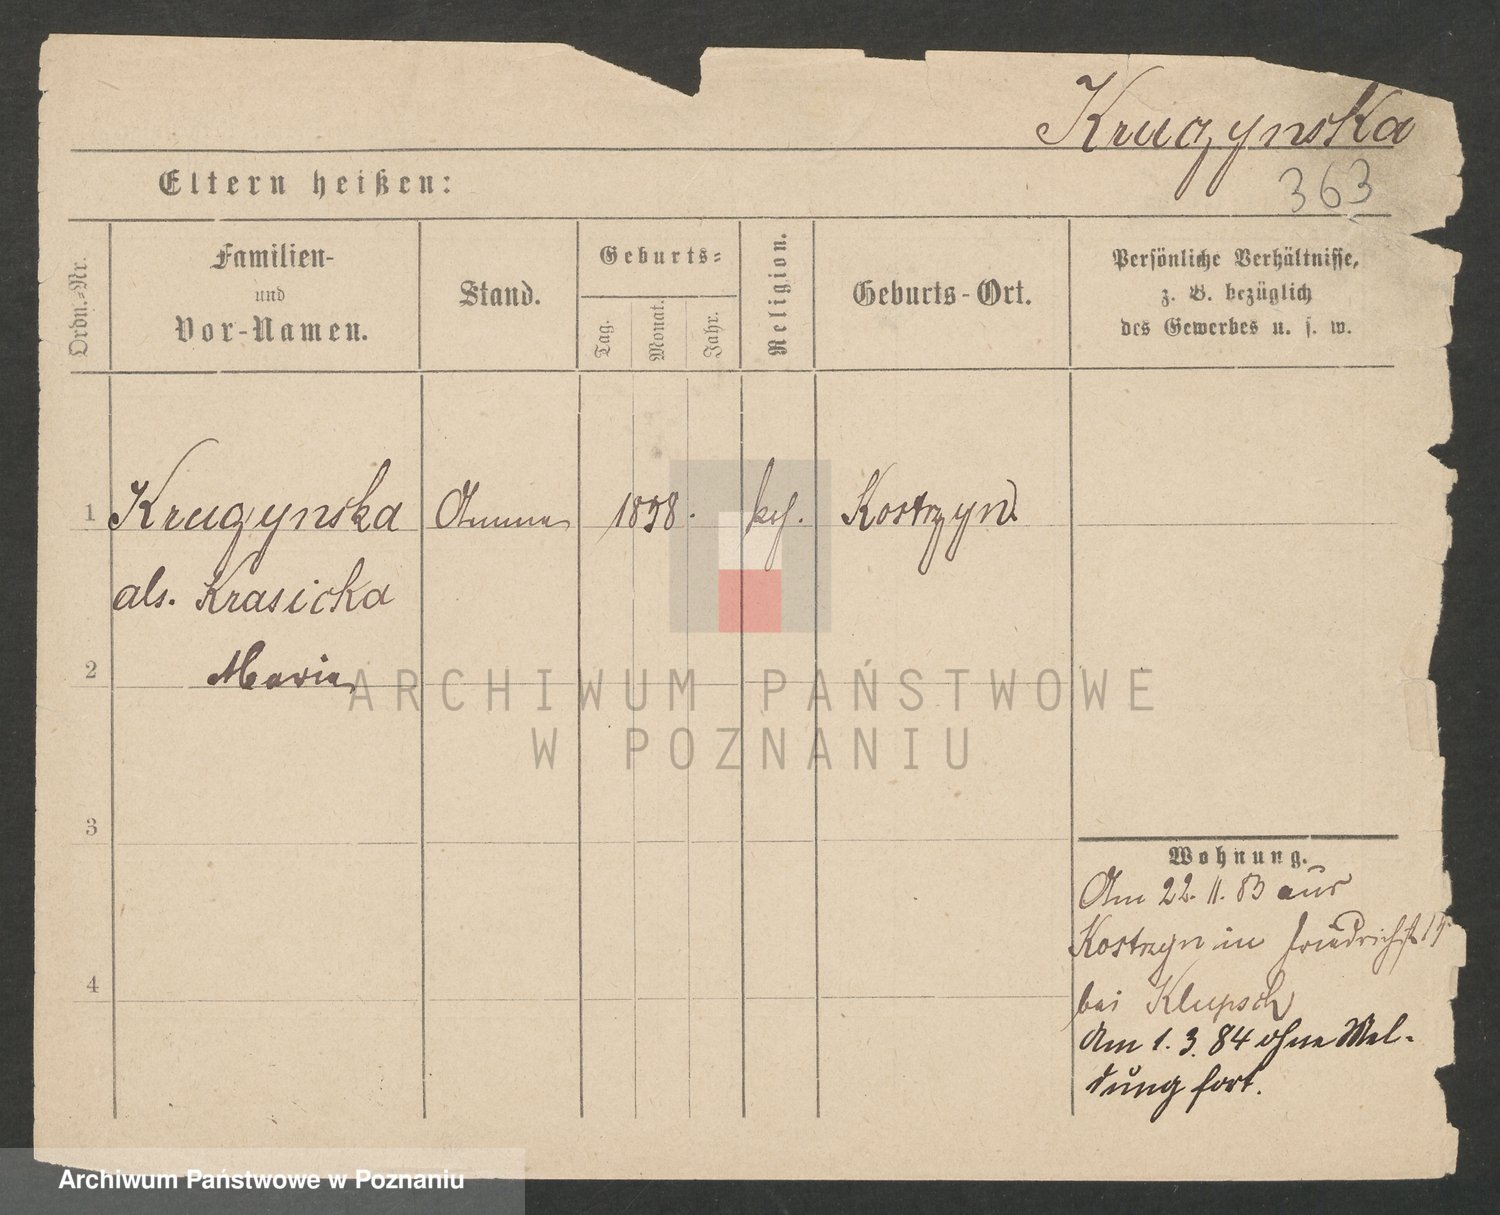 Kruczynska
363
Eltern heißen:
Ordn.-Nr.
Familien-
und
Vor-Namen.
Stand.
Geburts-
Tag.
Monat.
Jahr.
Religion.
Geburts-Ort.
Persönliche Verhältnisse,
z. B. bezüglich
des Gewerbes u. s. w.
1
Kruczynska
Amme
kath.
Kostrzyn
als. Krasicka
2
Maria
ARCHIWUM PAŃSTWOWE
W POZNANIU
3
Wohnung.
Am 22. 11. 83 aus
Kostrzyn in Friedrichst
4
bei Klupsch
Am 1. 3. 84 ohne Mel-
dung fort.
Archiwum Państwowe w Poznaniu